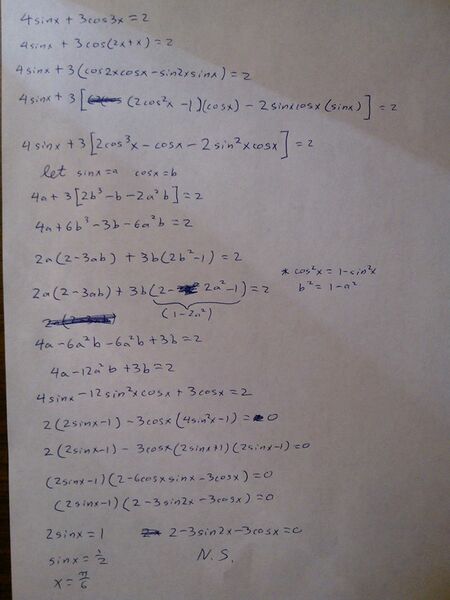 4sinx + 3cos3x = 2
4sinx + 3cos(2x+x) = 2
4sinx + 3(cos2xcosx - sin2xsinx) = 2
4sinx + 3[(2cos²x - 1)(cosx) - 2sinxcosx(sinx)] = 2
4sinx + 3[2cos³x - cosx - 2sin²xcosx] = 2
let sinx = a cosx = b
4a + 3[2b³ - b - 2a²b] = 2
4a + 6b³ - 3b - 6a²b = 2
2a(2 - 3ab) + 3b(2b² - 1) = 2
* cos²x = 1 - sin²x
2a(2 - 3ab) + 3b(2 - 2a² - 1) = 2
b² = 1 - a²
(1 - 2a²)
4a - 6a²b - 6a²b + 3b = 2
4a - 12a²b + 3b = 2
4sinx - 12sin²xcosx + 3cosx = 2
2(2sinx - 1) - 3cosx(4sin²x - 1) = 0
2(2sinx - 1) - 3cosx(2sinx + 1)(2sinx - 1) = 0
(2sinx - 1)(2 - 6cosxsinx - 3cosx) = 0
(2sinx - 1)(2 - 3sin2x - 3cosx) = 0
2sinx = 1 2 - 3sin2x - 3cosx = 0
sinx = 1/2 N.S.
x = π/6